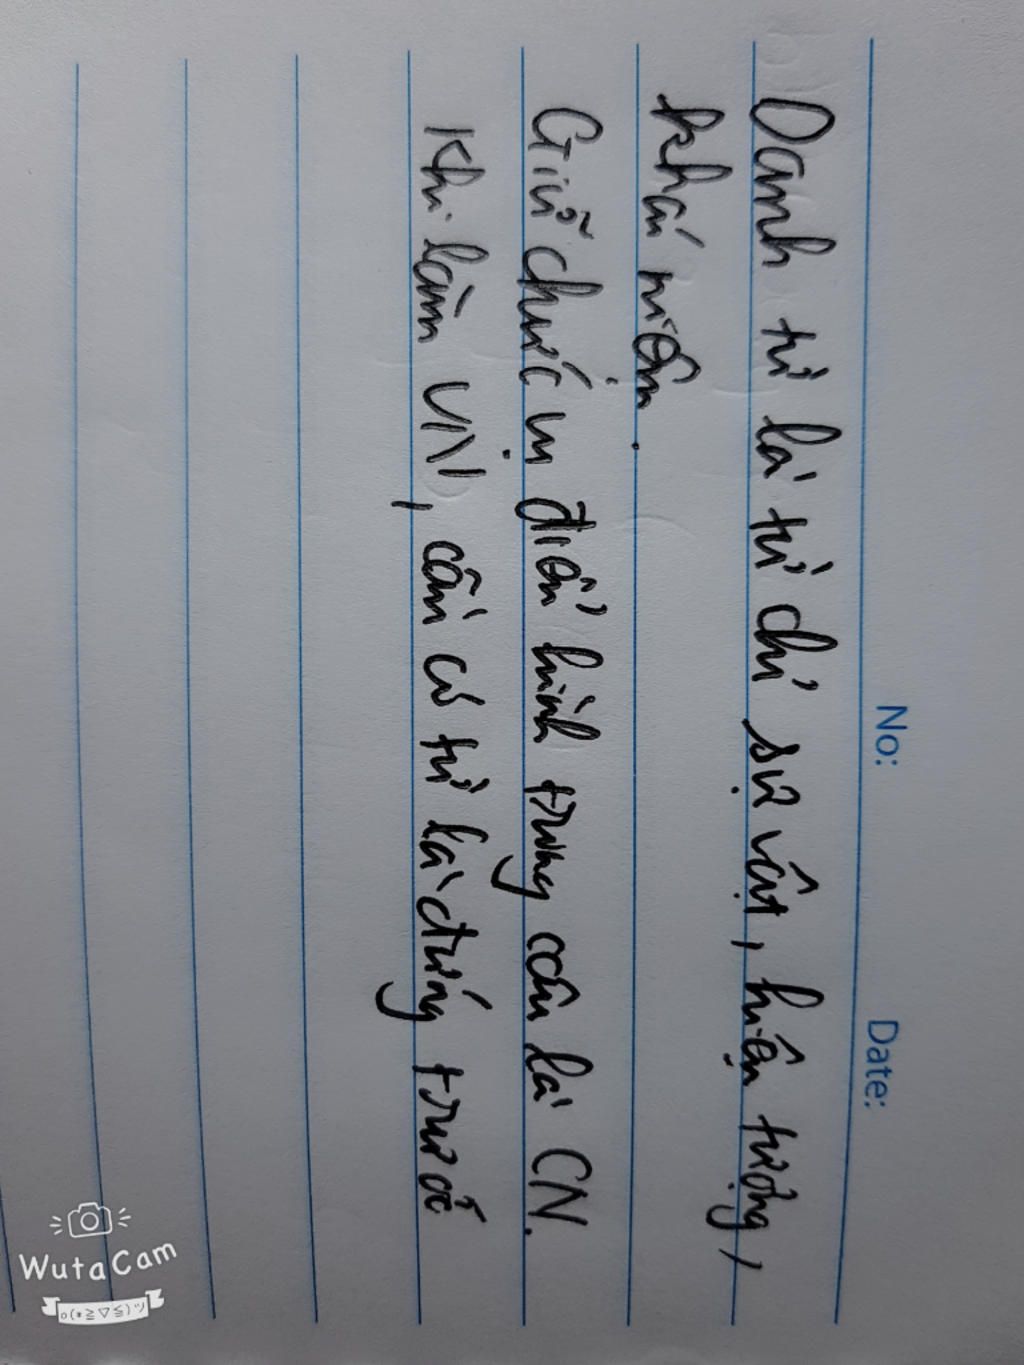 No: Date:
Danh từ là từ chỉ sự vật, hiện tượng,
khái niệm.
Giữ chức vị điển hình trong câu là CN.
Khi làm VN, cần có từ là đứng trước
WutaCam
o(*≧▽≦)ツ